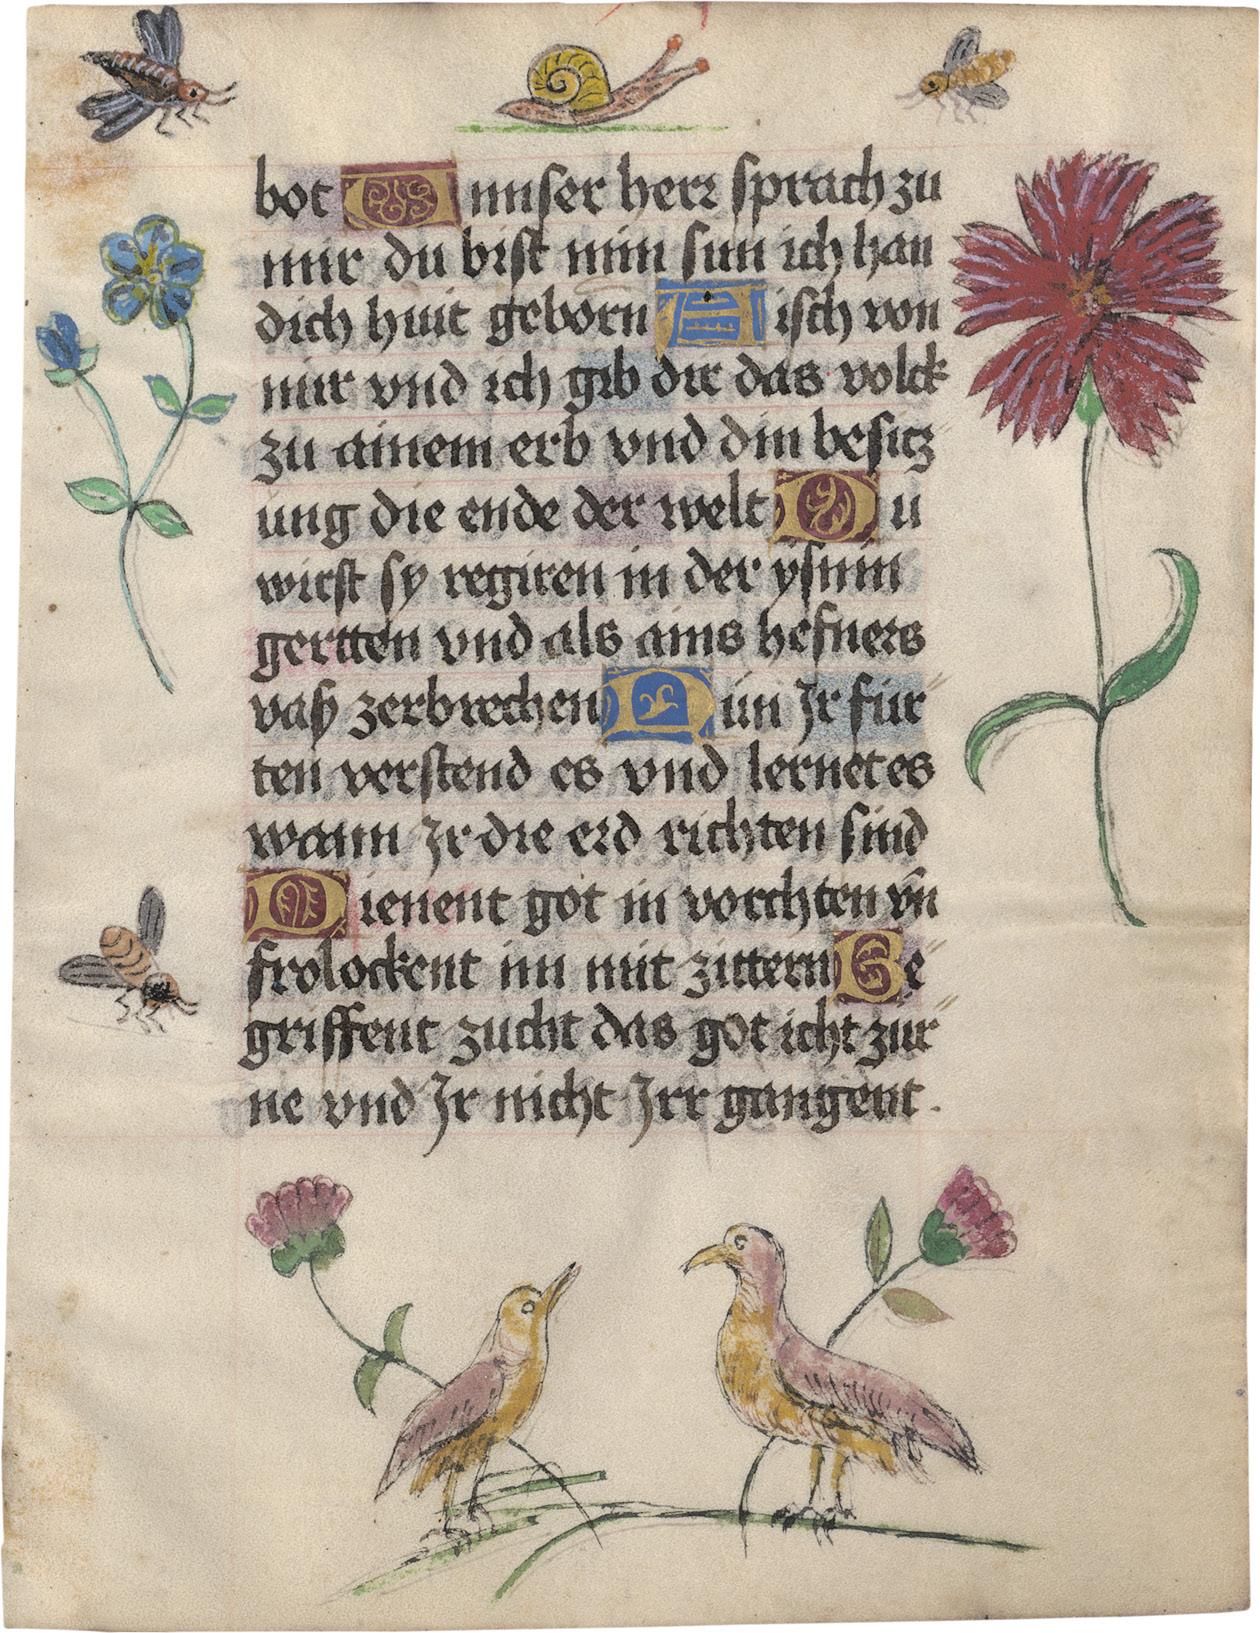 bot Vnnser herr sprach zu
mir du bist min sun ich han
dich huit geborn Aisch von
mir vnd ich gib dir das volck
zu ainem erb vnd din besitz
ung die ende der welt Du
wirst sy regiren in der ysinin
gertten vnd als ains hefners
vaß zerbrechen Nun Jr für
ten verstend es vnd lernet es
wann Jr die erd richten sind
Dienent got in vorchten vn̄
frolockent im mit zittern Be
griffent zucht das got icht zur
ne vnd Jr nicht Jrr gangent.